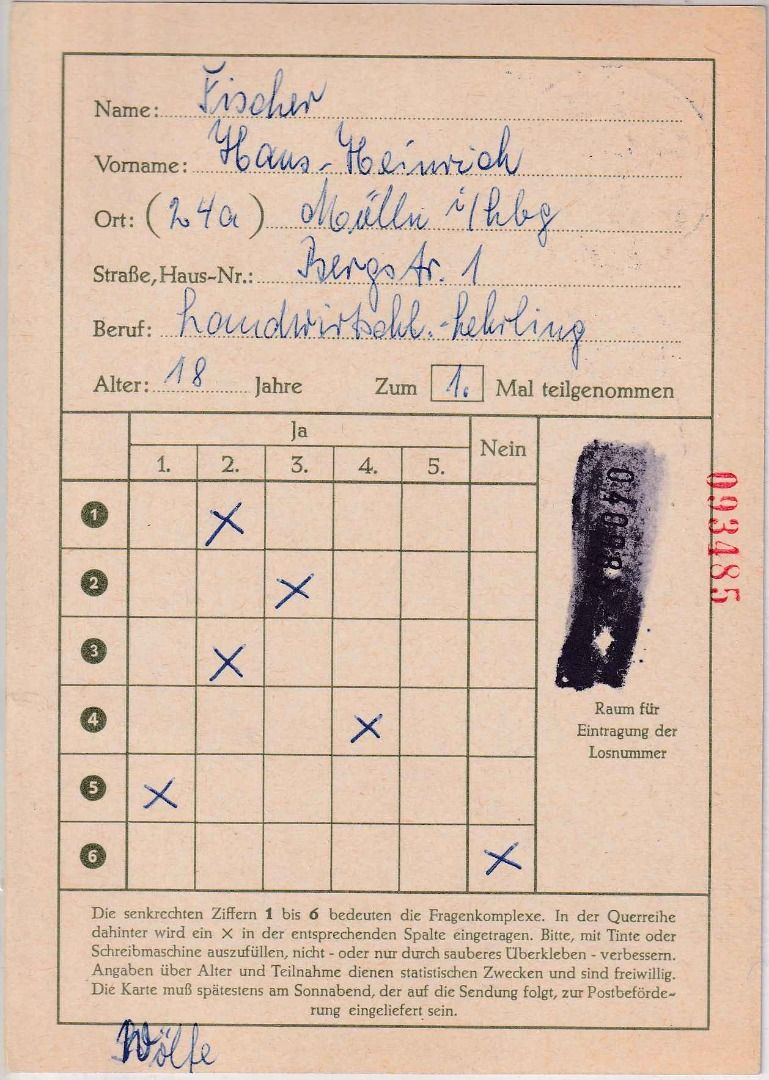 Name: Fischer
Vorname: Hans-Heinrich
Ort: (24a) Mölln i/Lbg
Straße, Haus-Nr.: Bergstr. 1
Beruf: Landwirtschl.-Lehrling
Alter: 18 Jahre Zum 1. Mal teilgenommen
Ja Nein
1. 2. 3. 4. 5.
1 X
2 X
3 X
4 X
5 X
6 X
093485
Raum für
Eintragung der
Losnummer
Die senkrechten Ziffern 1 bis 6 bedeuten die Fragenkomplexe. In der Querreihe
dahinter wird ein × in der entsprechenden Spalte eingetragen. Bitte, mit Tinte oder
Schreibmaschine auszufüllen, nicht - oder nur durch sauberes Überkleben - verbessern.
Angaben über Alter und Teilnahme dienen statistischen Zwecken und sind freiwillig.
Die Karte muß spätestens am Sonnabend, der auf die Sendung folgt, zur Postbeförde-
rung eingeliefert sein.
Wölfe